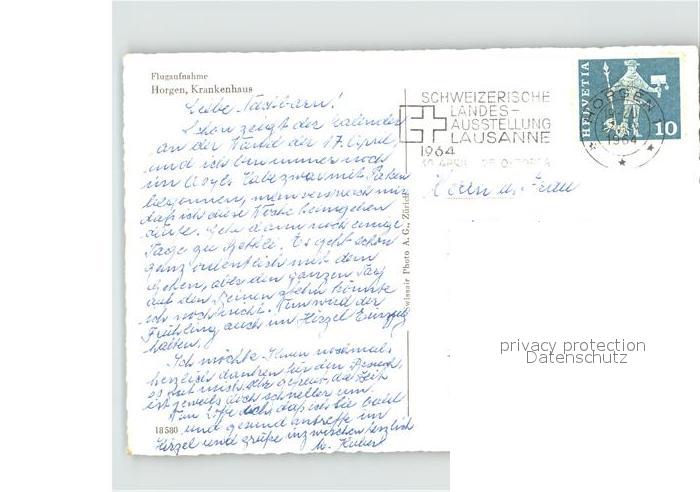 Flugaufnahme
Horgen, Krankenhaus
Liebe Nachbarn!
Schon zeigt der Kalender
an der Wand der 17. April,
und ich bin immer noch
im Asyl. Habe zwar mit Packen
begonnen, man versprach mir
daß ich diese Woche heimgehen
dürfe. Gehe dann noch einige
Tage zu Bethli. Es geht schon
ganz ordentlich mit dem
Gehen, aber den ganzen Tag
auf den Beinen stehn könnte
ich noch nicht. Nun wird der
Frühling auch im Hirzel Einzug
halten.
Ich möchte Ihnen nochmals
herzlich danken für den Besuch,
es hat mich sehr gefreut, die Zeit
ist jeweils doch schneller um.
Nun hoffe ich, daß ich Sie bald
und gesund antreffe im
Hirzel und grüße inzwischen herzlich
M. Huber
18580
Swissair Photo A. G., Zürich
SCHWEIZERISCHE
LANDES-
AUSSTELLUNG
LAUSANNE
1964
30. APRIL - 25. OKTOBER
HELVETIA
10
HORGEN
1964
Herrn u. Frau
privacy protection
Datenschutz